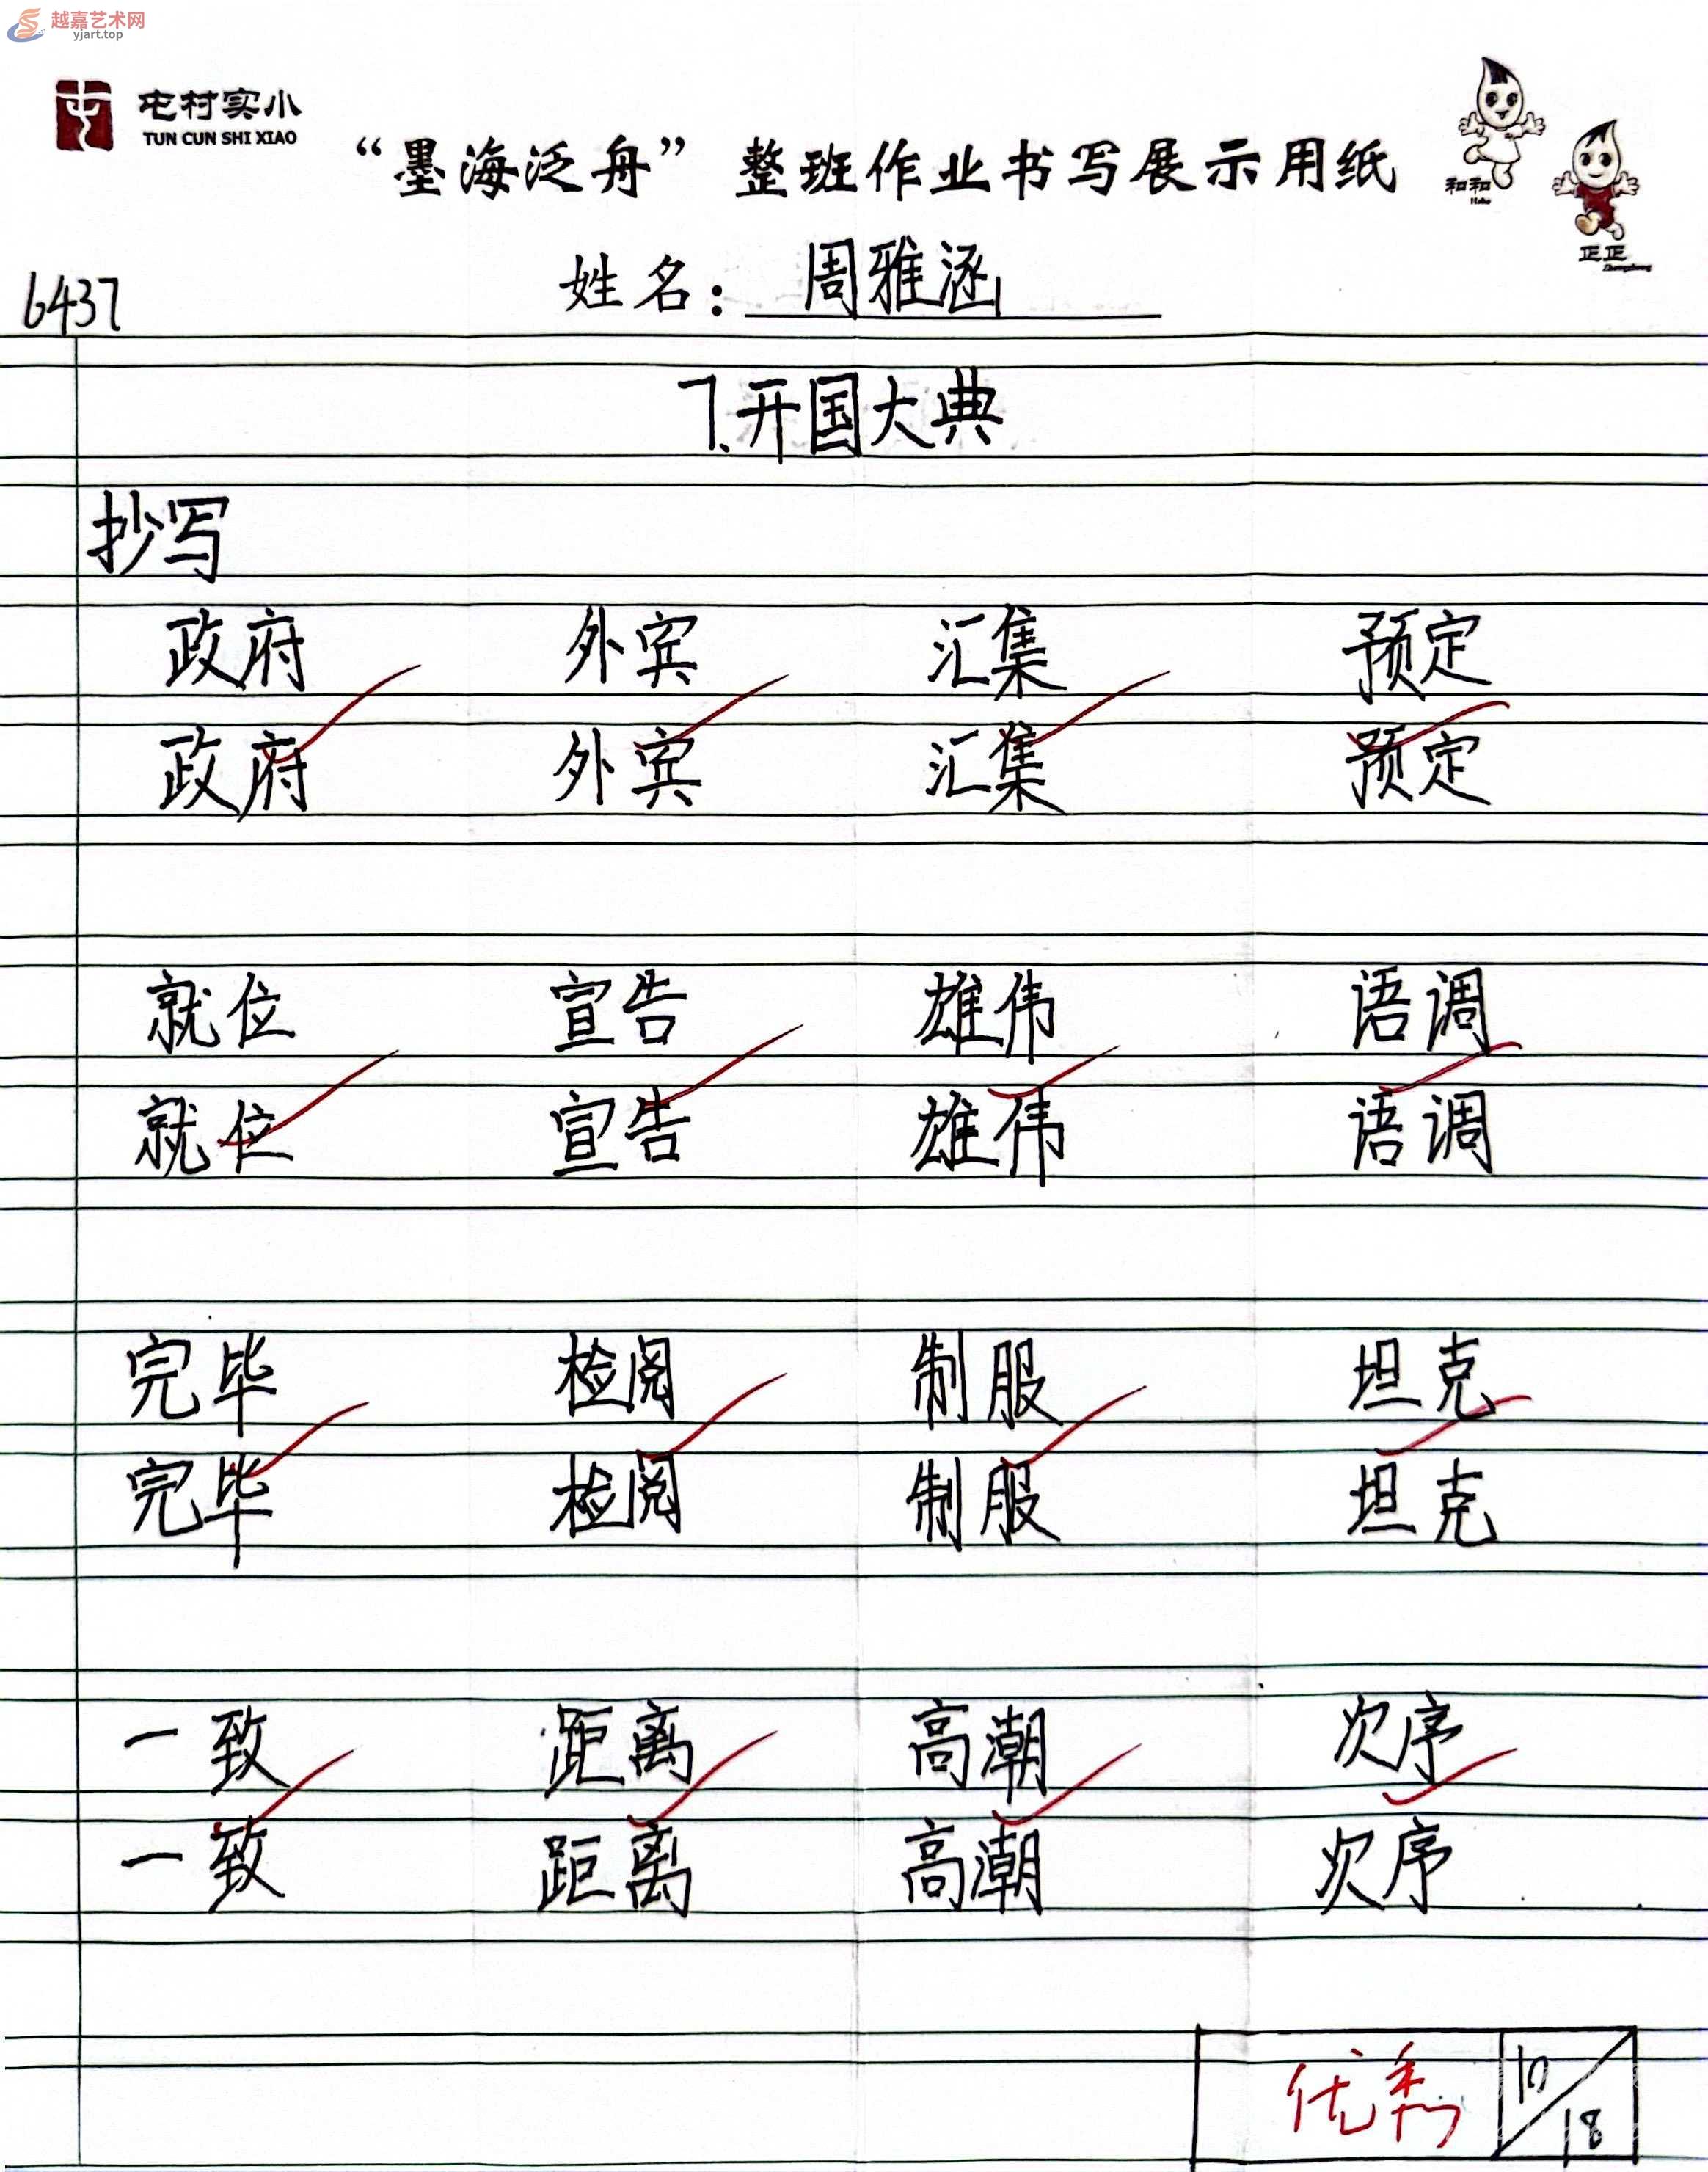 越嘉艺术网
yjart.top
屯村实小
TUN CUN SHI XIAO
“墨海泛舟”整班作业书写展示用纸
和和
Hehe
正正
Zhengzheng
6437
姓名：周雅涵
7.开国大典
抄写
政府 外宾 汇集 预定
政府 外宾 汇集 预定
就位 宣告 雄伟 语调
就位 宣告 雄伟 语调
完毕 检阅 制服 坦克
完毕 检阅 制服 坦克
一致 距离 高潮 次序
一致 距离 高潮 次序
优秀 10/18